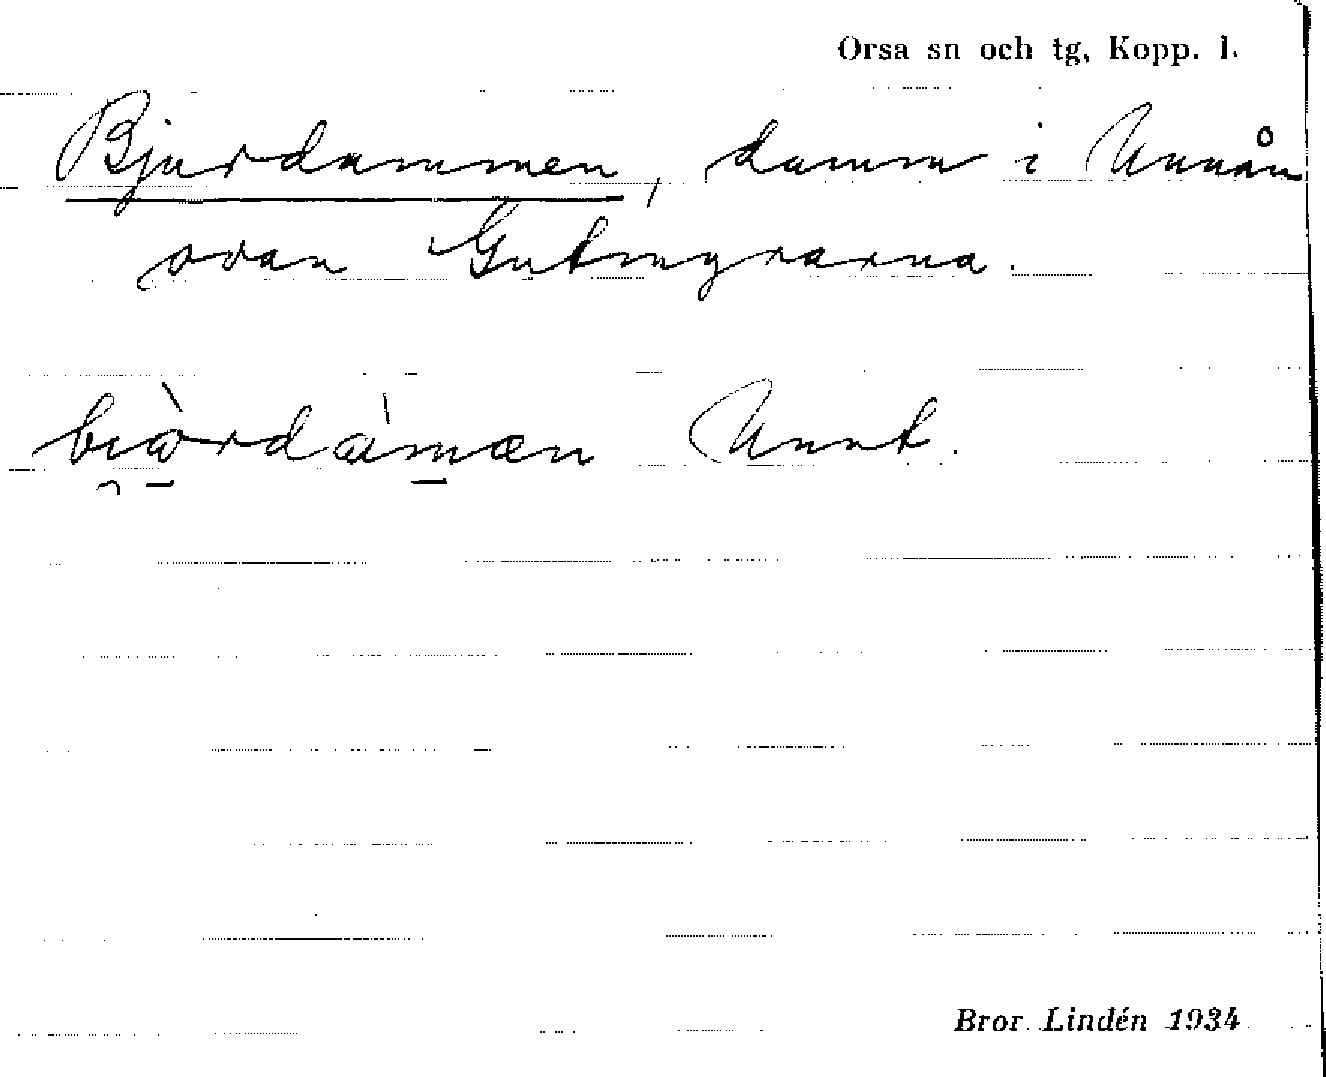 Orsa sn och tg, Kopp. l.
Bjurdammen, damm i Unnån
ovan Gutmyrarna.
Unnt.
Bror Lindén 1934